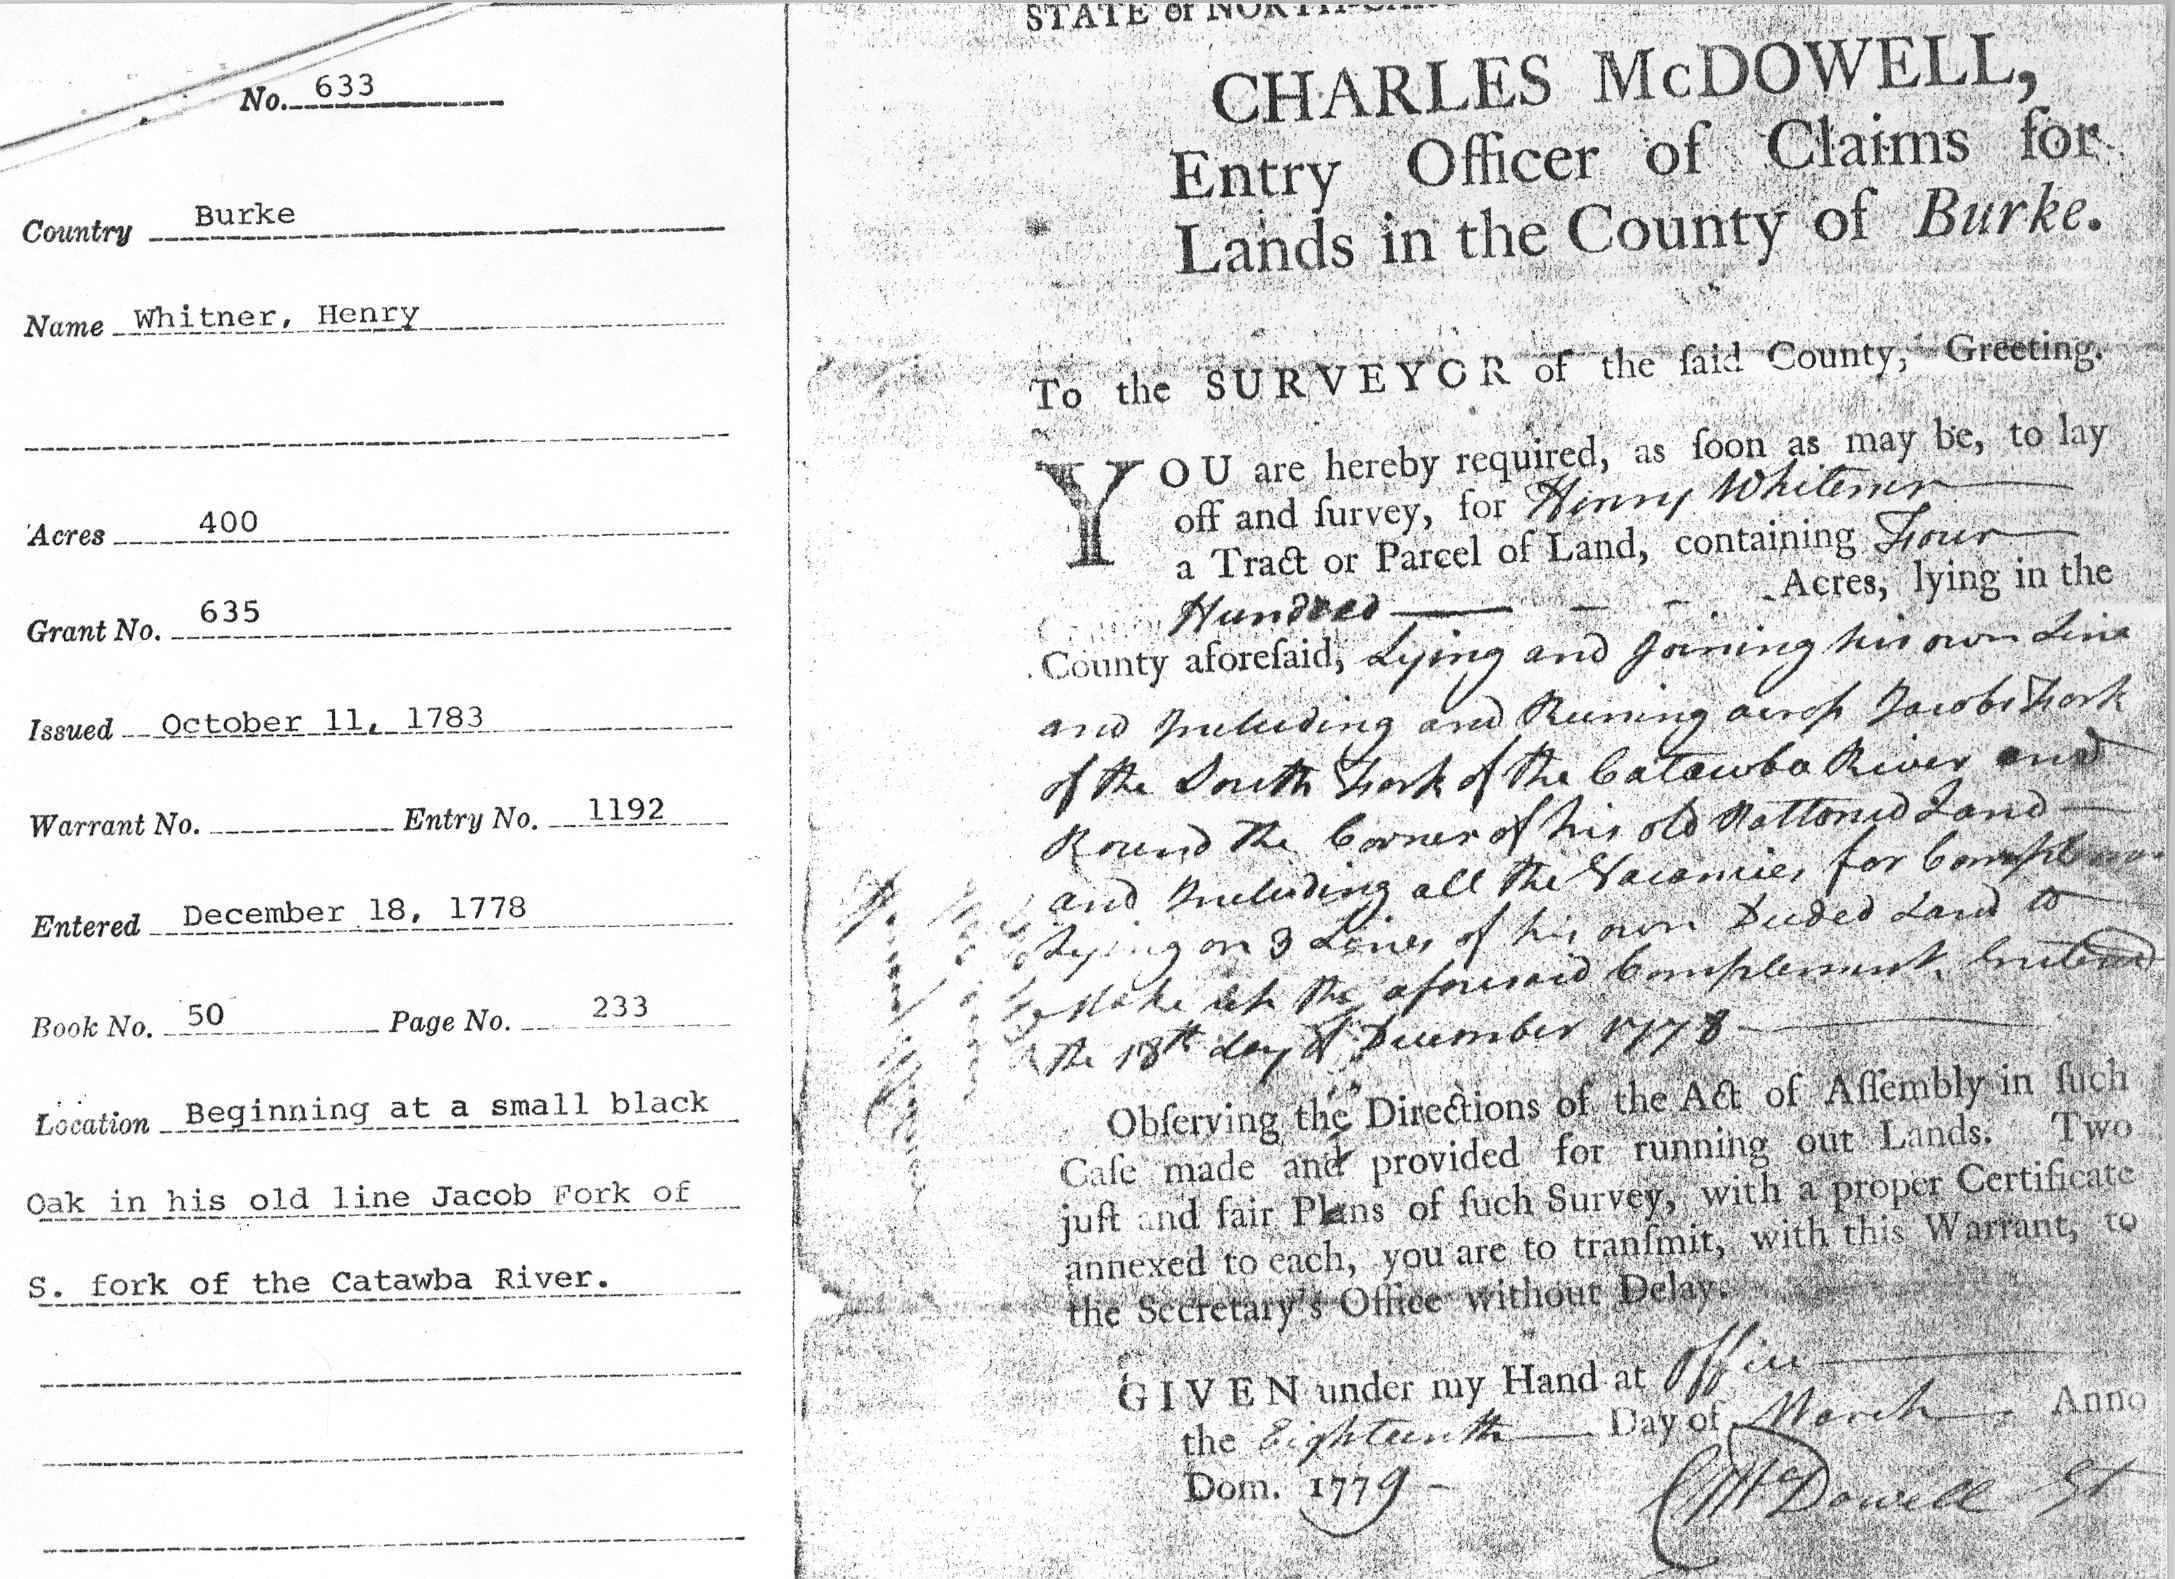 No. 633
Country Burke
Name Whitner, Henry
Acres 400
Grant No. 635
Issued October 11, 1783
Warrant No. Entry No. 1192
Entered December 18, 1778
Book No. 50 Page No. 233
Location Beginning at a small black
Oak in his old line Jacob Fork of
S. fork of the Catawba River.
STATE of NORTH-CAR
CHARLES McDOWELL,
Entry Officer of Claims for
Lands in the County of Burke.
To the SURVEYOR of the ſaid County, Greeting.
YOU are hereby required, as ſoon as may be, to lay
off and ſurvey, for Henry Whitener
a Tract or Parcel of Land, containing Four
Hundred Acres, lying in the
County aforeſaid, Lying and Joining his own Line
and Including and Runing across Jacobs Fork
of the South Fork of the Catawba River and
Round the Corner of his old Pattoned Land
and Including all the Vacancies for
Lying on 3 Lines of his own Deeded Land to
Make up the aforesaid Complement Entered
the 18th day of December 1778
Obſerving the Directions of the Act of Aſſembly in ſuch
Caſe made and provided for running out Lands. Two
juſt and fair Plans of ſuch Survey, with a proper Certificate
annexed to each, you are to tranſmit, with this Warrant, to
the Secretary's Office without Delay.
GIVEN under my Hand at Office
the Eighteenth Day of March Anno
Dom. 1779
C McDowell